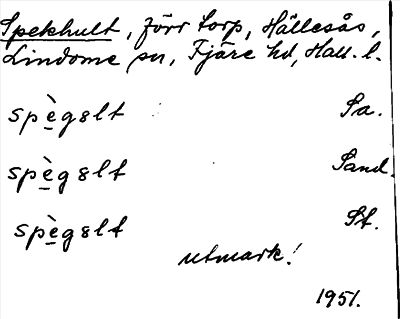 Spekhult, förr torp, Hällesås,
Lindome sn, Fjäre hd, Hall. l.
spè̱gɜlt Sa.
spè̱gɜlt Sand.
spè̱gɜlt St.
utmark!
1951.